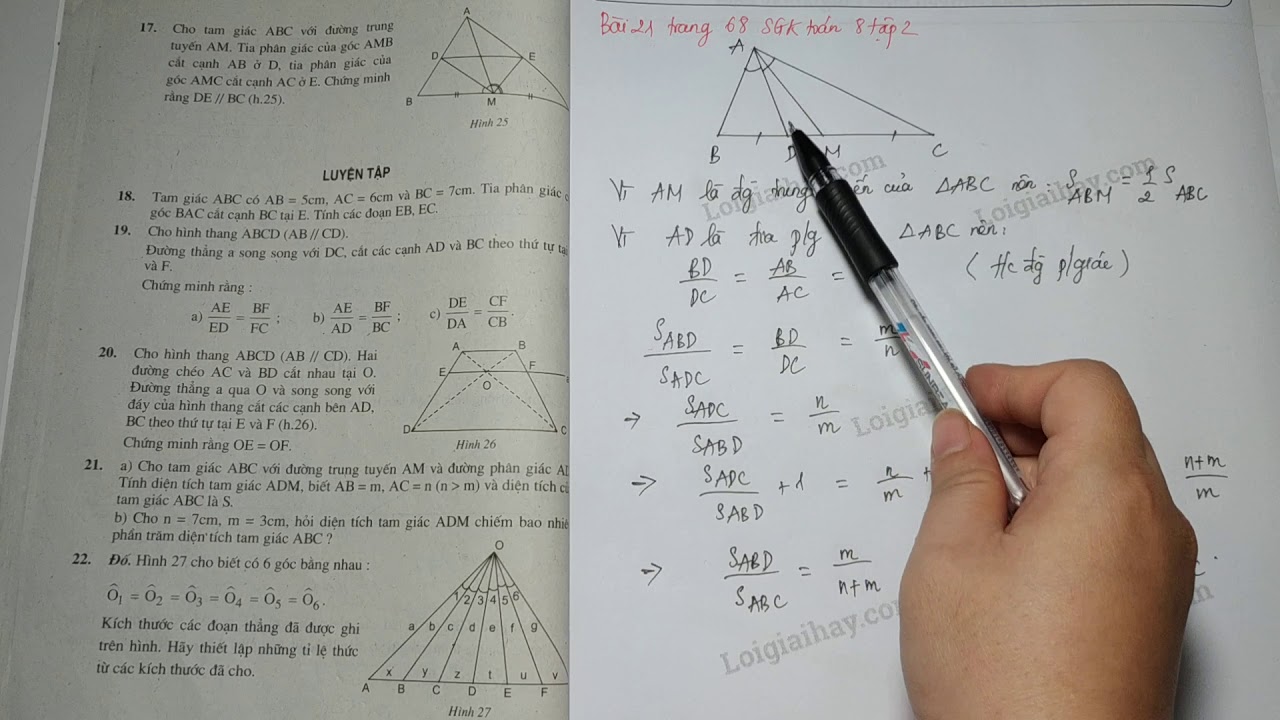 17. Cho tam giác ABC với đường trung
tuyến AM. Tia phân giác của góc AMB
cắt cạnh AB ở D, tia phân giác của
góc AMC cắt cạnh AC ở E. Chứng minh
rằng DE // BC (h.25).
A
D
E
B
M
Hình 25
LUYỆN TẬP
18. Tam giác ABC có AB = 5cm, AC = 6cm và BC = 7cm. Tia phân giác
góc BAC cắt cạnh BC tại E. Tính các đoạn EB, EC.
19. Cho hình thang ABCD (AB // CD).
Đường thẳng a song song với DC, cắt các cạnh AD và BC theo thứ tự
và F.
Chứng minh rằng :
a) AE/ED = BF/FC ; b) AE/AD = BF/BC ; c) DE/DA = CF/CB .
20. Cho hình thang ABCD (AB // CD). Hai
đường chéo AC và BD cắt nhau tại O.
Đường thẳng a qua O và song song với
đáy của hình thang cắt các cạnh bên AD,
BC theo thứ tự tại E và F (h.26).
Chứng minh rằng OE = OF.
A B
E F
O
D C
Hình 26
21. a) Cho tam giác ABC với đường trung tuyến AM và đường phân giác
Tính diện tích tam giác ADM, biết AB = m, AC = n (n > m) và diện tích
tam giác ABC là S.
b) Cho n = 7cm, m = 3cm, hỏi diện tích tam giác ADM chiếm bao
phần trăm diện tích tam giác ABC ?
22. Đố. Hình 27 cho biết có 6 góc bằng nhau :
Ô1 = Ô2 = Ô3 = Ô4 = Ô5 = Ô6.
Kích thước các đoạn thẳng đã được ghi
trên hình. Hãy thiết lập những tỉ lệ thức
từ các kích thước đã cho.
O
1 2 3 4 5 6
a b c d e f g
x y z t u v
A B C D E F
Hình 27
Bài 21 trang 68 SGK toán 8 tập 2
A
B D M C
Vì AM là đg trung của ΔABC nên : S ABM = 1/2 S ABC
Vì AD là tia p/g ΔABC nên :
BD/DC = AB/AC = (t/c đg p/giác)
S ABD/S ADC = BD/DC = m/n
→ S ADC/S ABD = n/m
→ S ADC/S ABD + 1 = n/m + n+m/m
→ S ABD/S ABC = m/n+m
Loigiaihay.com
Loigiaihay.com
Loigiaihay.com
Loigiaihay.com